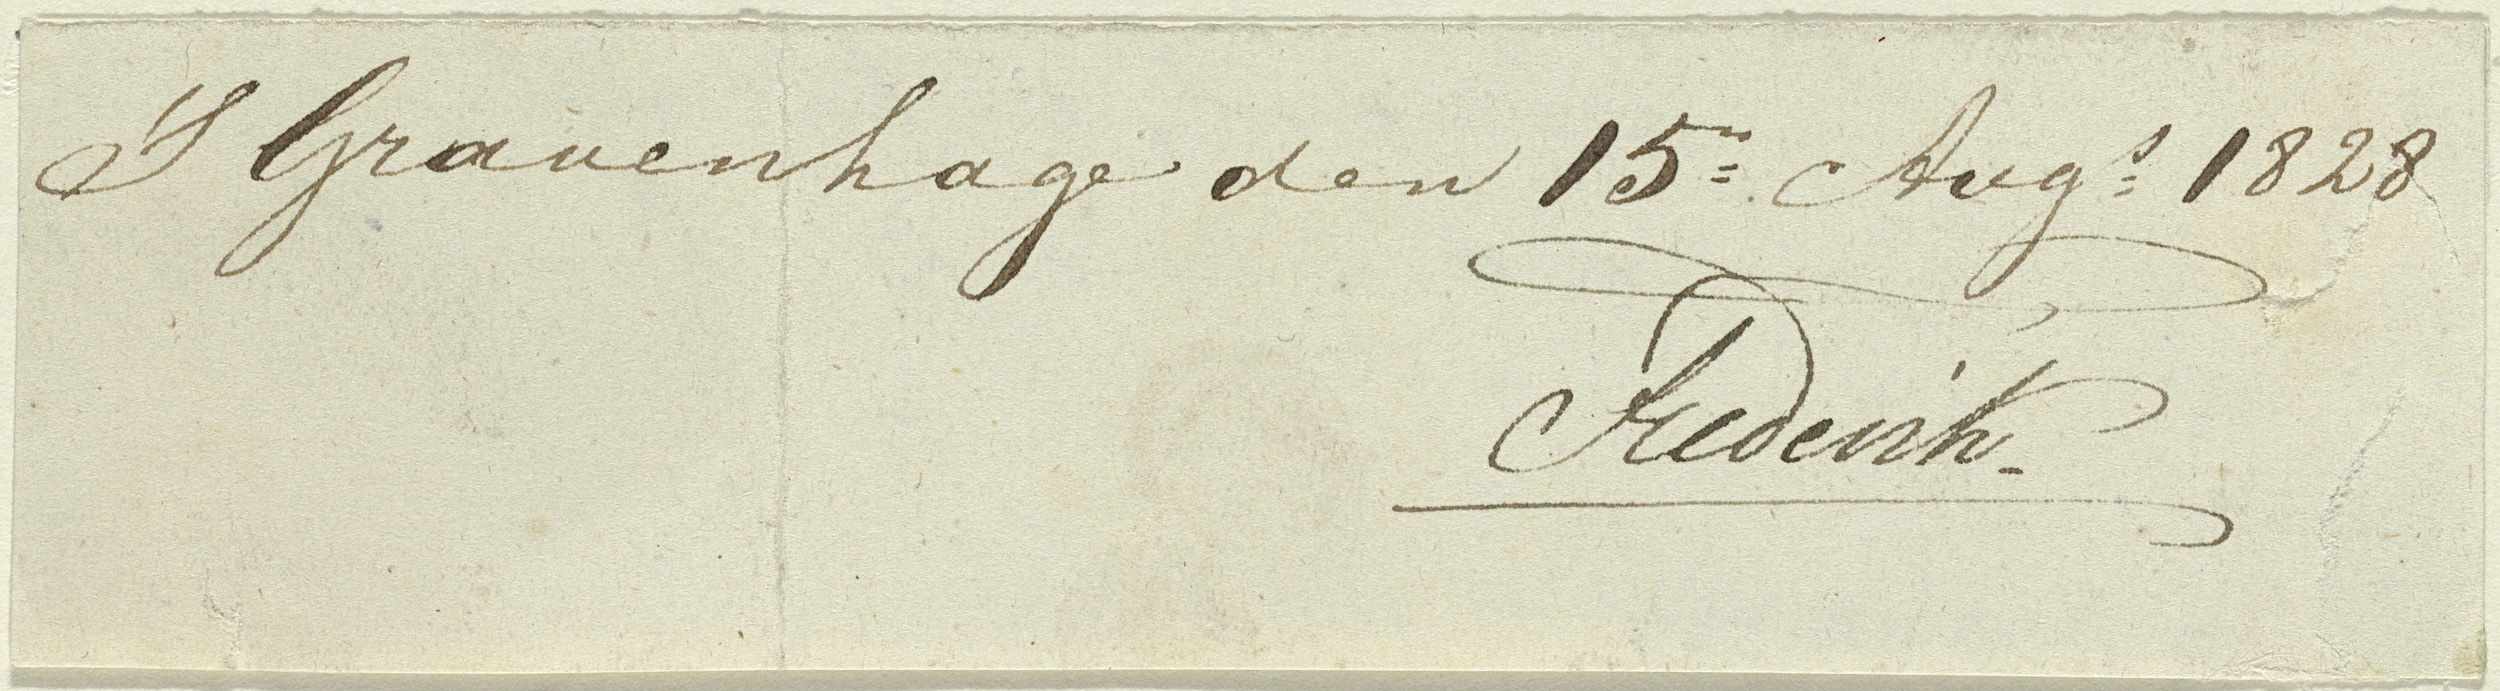 'S Gravenhage den 15n Augs 1828
Frederik